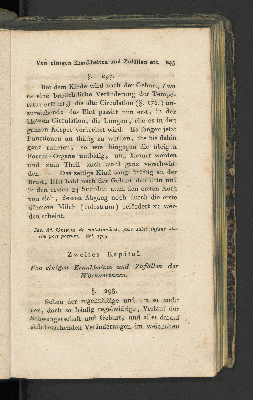 Von einigen Krankheiten und Zufällen etc. 245
§. 297.
Bei dem Kinde wird nach der Geburt, (wo
es eine beträchtliche Veränderung der Tempe-
ratur erfährt) die alte Circulation (§. 176.) un-
das Blut passirt nun erst, in der
kleinen Circulation, die Lungen, ehe es in den
ganzen Körper verbreitet wird. Es fangen jetzt
Functionen an thätig zu werden, die bis dahin
ganz ruhten, so wie hingegen die übrigen
Foetus-Organe unthätig, und kleiner werden
und zum Theil auch wohl ganz verschwin-
den. Das zeitige Kind saugt kräftig an der
Brust, läfst bald nach der Geburt den Urin und
in den ersten 24 Stunden auch den ersten Koth
von sich, dessen Abgang noch durch die erste
dünnere Milch (colostrum) befördert zu wer-
den scheint.
Zweites Kapitel.
Von einigen Krankheiten und Zufällen der
Wöchnerinnen.
§. 298.
Schon der regelmäfsige und um so mehr
der, doch so häufig regelwidrige, Verlauf der
Schwangerschaft und Geburt, und aller darauf
sich beziehenden Veränderungen im weiblichen